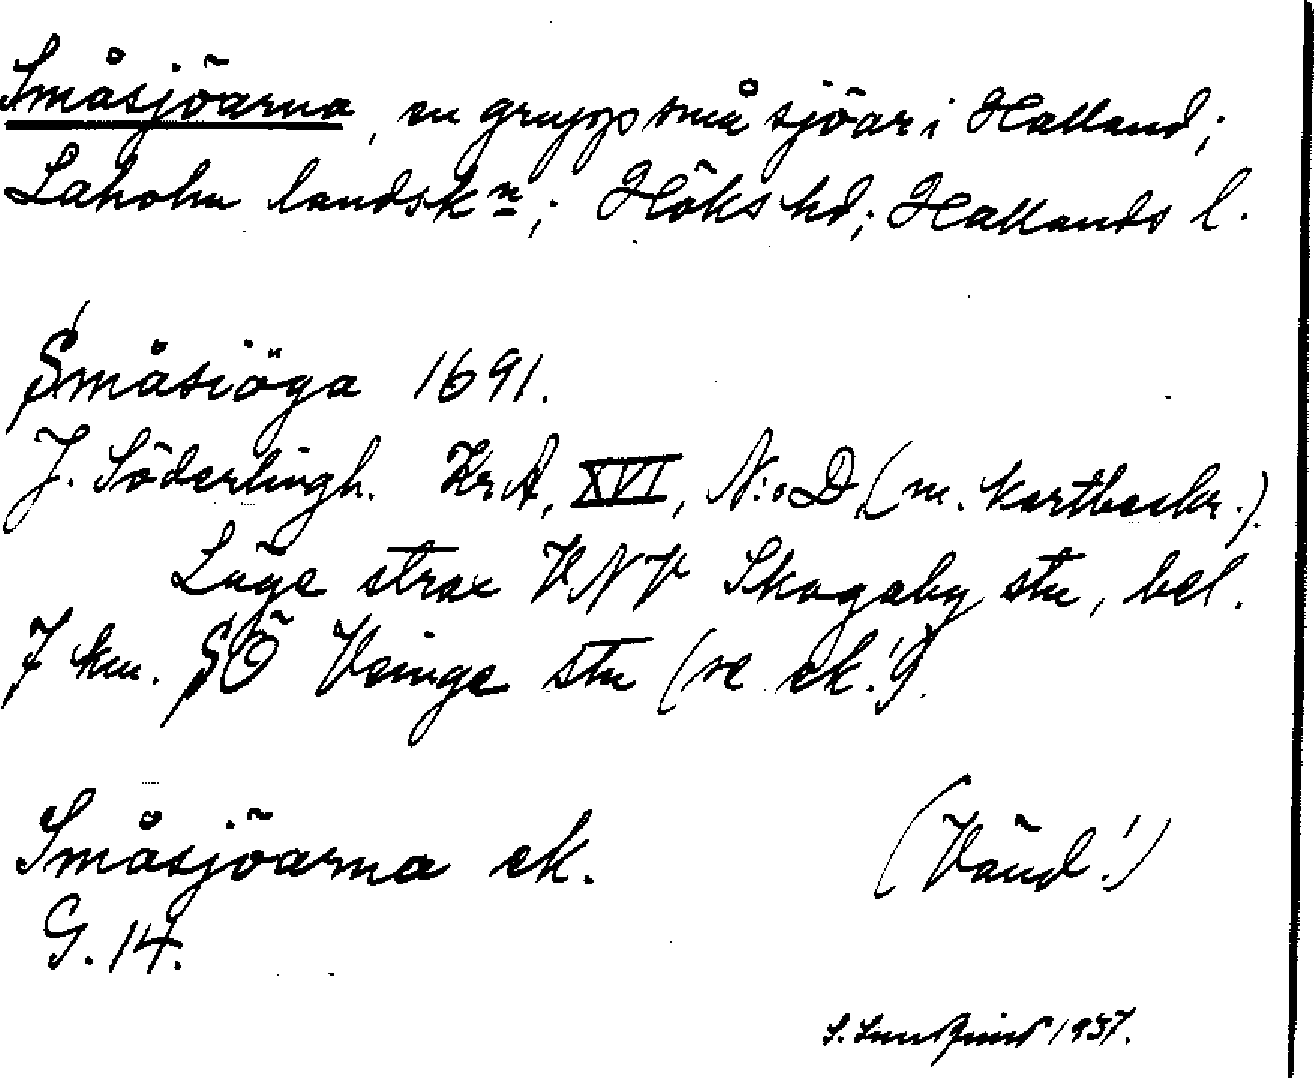 Småsjöarna, en grupp små sjöar i Halland;
Laholm landsk<sup>n</sup>; Höks hd; Hallands l.
Småsiöga 1691.
J. Söderlingh. Kr.A, XVI, N:o D (m. kartbeskr.).
Läge strax VNV Skogaby stn, bel.
7 km. SÖ Veinge stn (se ek.!).
Småsjöarna ek. (Vänd!)
G. 14.
S. 1937.